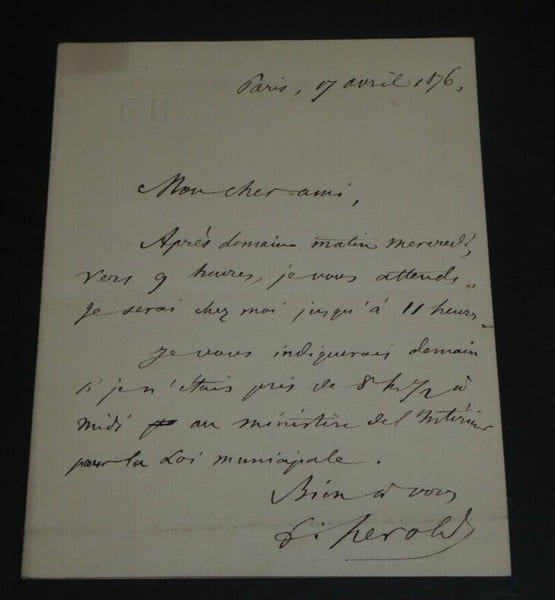 Paris, 17 avril 1876,
Mon cher ami,
Après demain matin mercredi,
vers 9 heures, je vous attends.
Je serai chez moi jusqu'à 11 heures.
Je vous indiquerais demain
si je n'étais pris de 8 h 1/2 à
midi au ministère de l'Intérieur
pour la Loi municipale.
Bien à vous
F. Herold